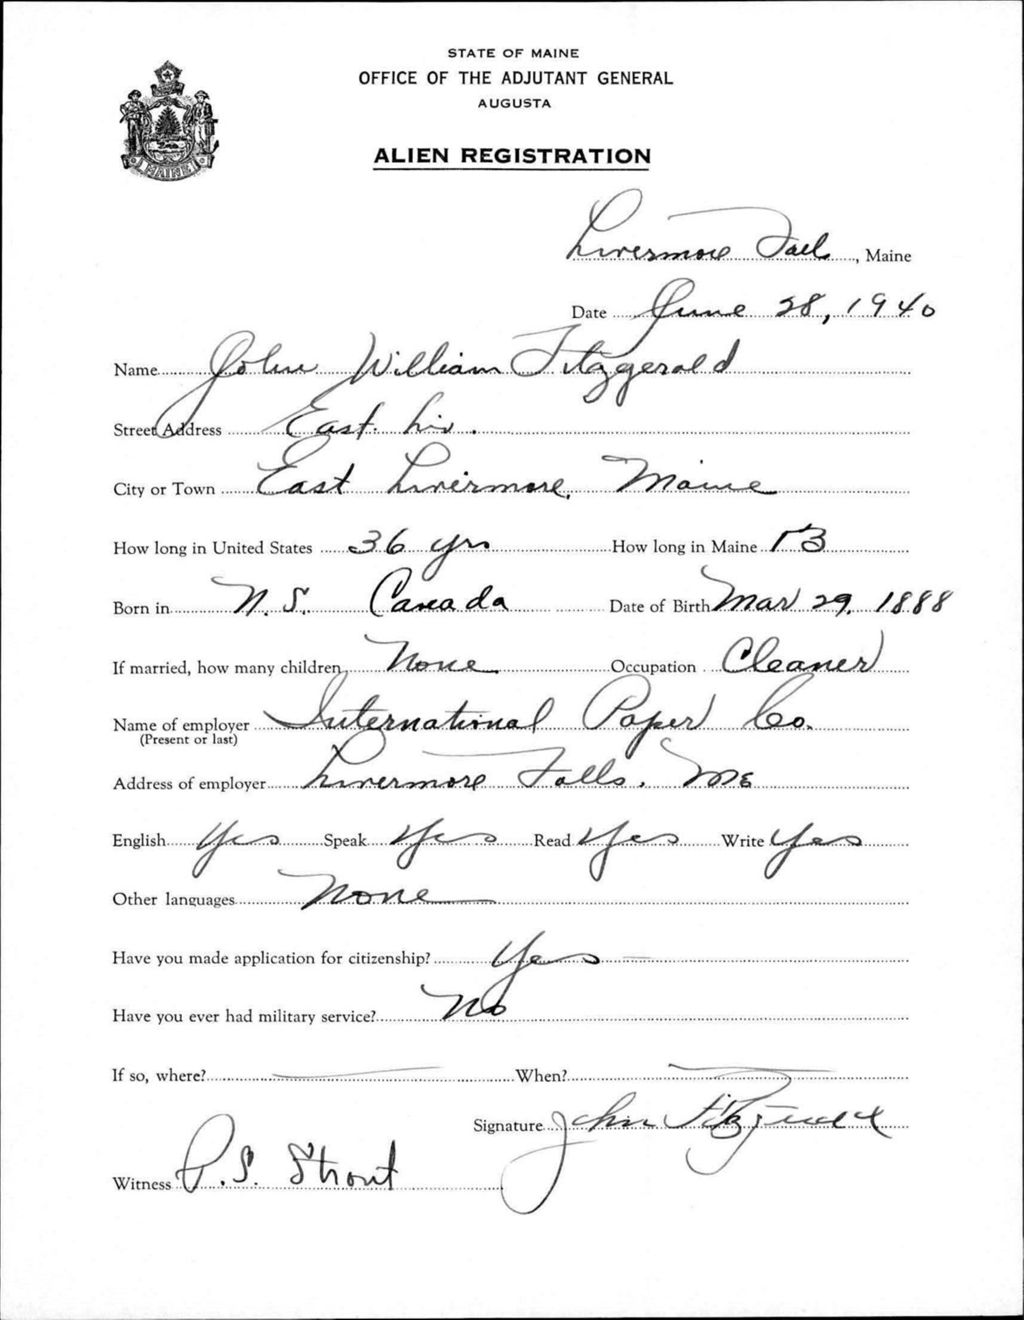 STATE OF MAINE
OFFICE OF THE ADJUTANT GENERAL
AUGUSTA
MAINE
ALIEN REGISTRATION
Livermore Falls, Maine
Date June 28, 1940
Name John William Fitzgerald
Street Address East Liv.
City or Town East Livermore, Maine
How long in United States 36 yrs How long in Maine 13
Born in N.S. Canada Date of Birth Mar 29, 1888
If married, how many children None Occupation Cleaner
Name of employer International Paper Co.
(Present or last)
Address of employer Livermore Falls, Me
English Yes Speak Yes Read Yes Write Yes
Other languages None
Have you made application for citizenship? Yes
Have you ever had military service? No
If so, where? When?
Signature John Fitzgerald
Witness P.S. Strout